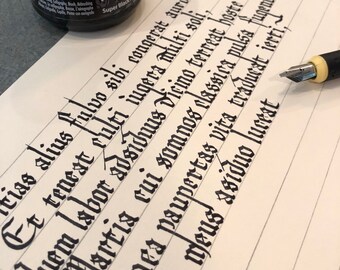 Super Black
itias alius fulvo sibi congerat aur
Et teneat culti iugera multi soli
uem labor adsiduus vicino terreat hoste
Martia cui somnos classica pulsa fugent
mea paupertas vita traducat ierti
meus assiduo luceat